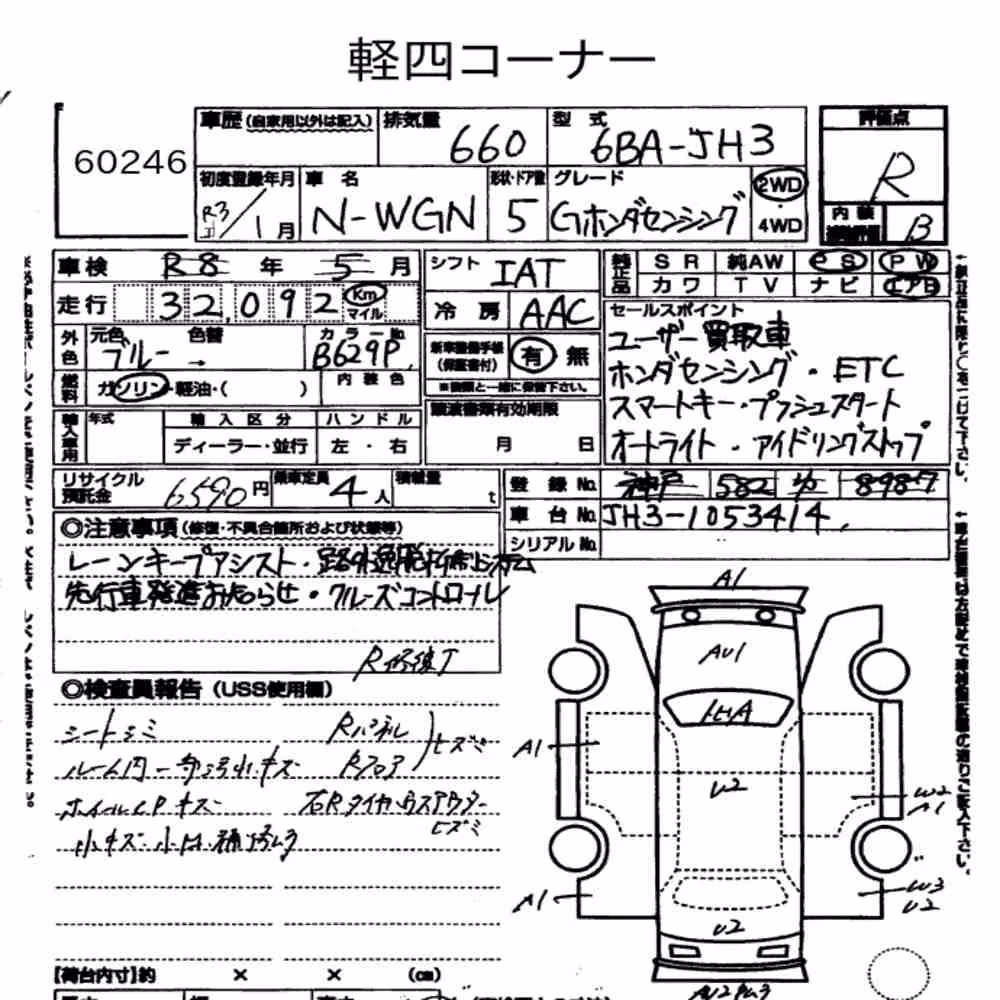 軽四コーナー
60246
車歴(自家用以外は記入)
排気量 660
型式 6BA-JH3
評価点 R
内装 B
初度登録年月 R3/1月
車名 N-WGN
形状・ドア数 5
グレード Gホンダセンシング
2WD・4WD
車検 R8年5月
シフト IAT
純正品 SR 純AW PS PW
カワ TV ナビ エアB
走行 32,092 Km マイル
冷房 AAC
セールスポイント
ユーザー買取車
ホンダセンシング・ETC
スマートキー・プッシュスタート
オートライト・アイドリングストップ
外色 元色 ブルー → 色替 カラーNo. B629P
新車整備手帳(保証書付) 有 無
※書類と一緒に保管下さい。
燃料 ガソリン・軽油・( ) 内装色
譲渡書類有効期限
月 日
輸入車用 年式 輸入区分 ハンドル
ディーラー・並行 左・右
リサイクル預託金 6590円
乗車定員 4人
積載量 t
登録No. 神戸 582 8987
車台No. JH3-1053414
シリアルNo.
◎注意事項(修復・不具合箇所および状態等)
レーンキープアシスト・路外逸脱抑制システム
先行車発進お知らせ・クルーズコントロール
R修復了
◎検査員報告(USS使用欄)
シートシミ Rパネル
ルーム内一部汚れ.キズ Rフロア ヒズミ
ホイールCPキズ 右Rタイヤハウスアウター
ヒズミ
小キズ.小凹.補修有
A1
AU1
A1
U2
W2
A1
A1
W3
U2
U2
【荷台内寸】約 × × (cm)